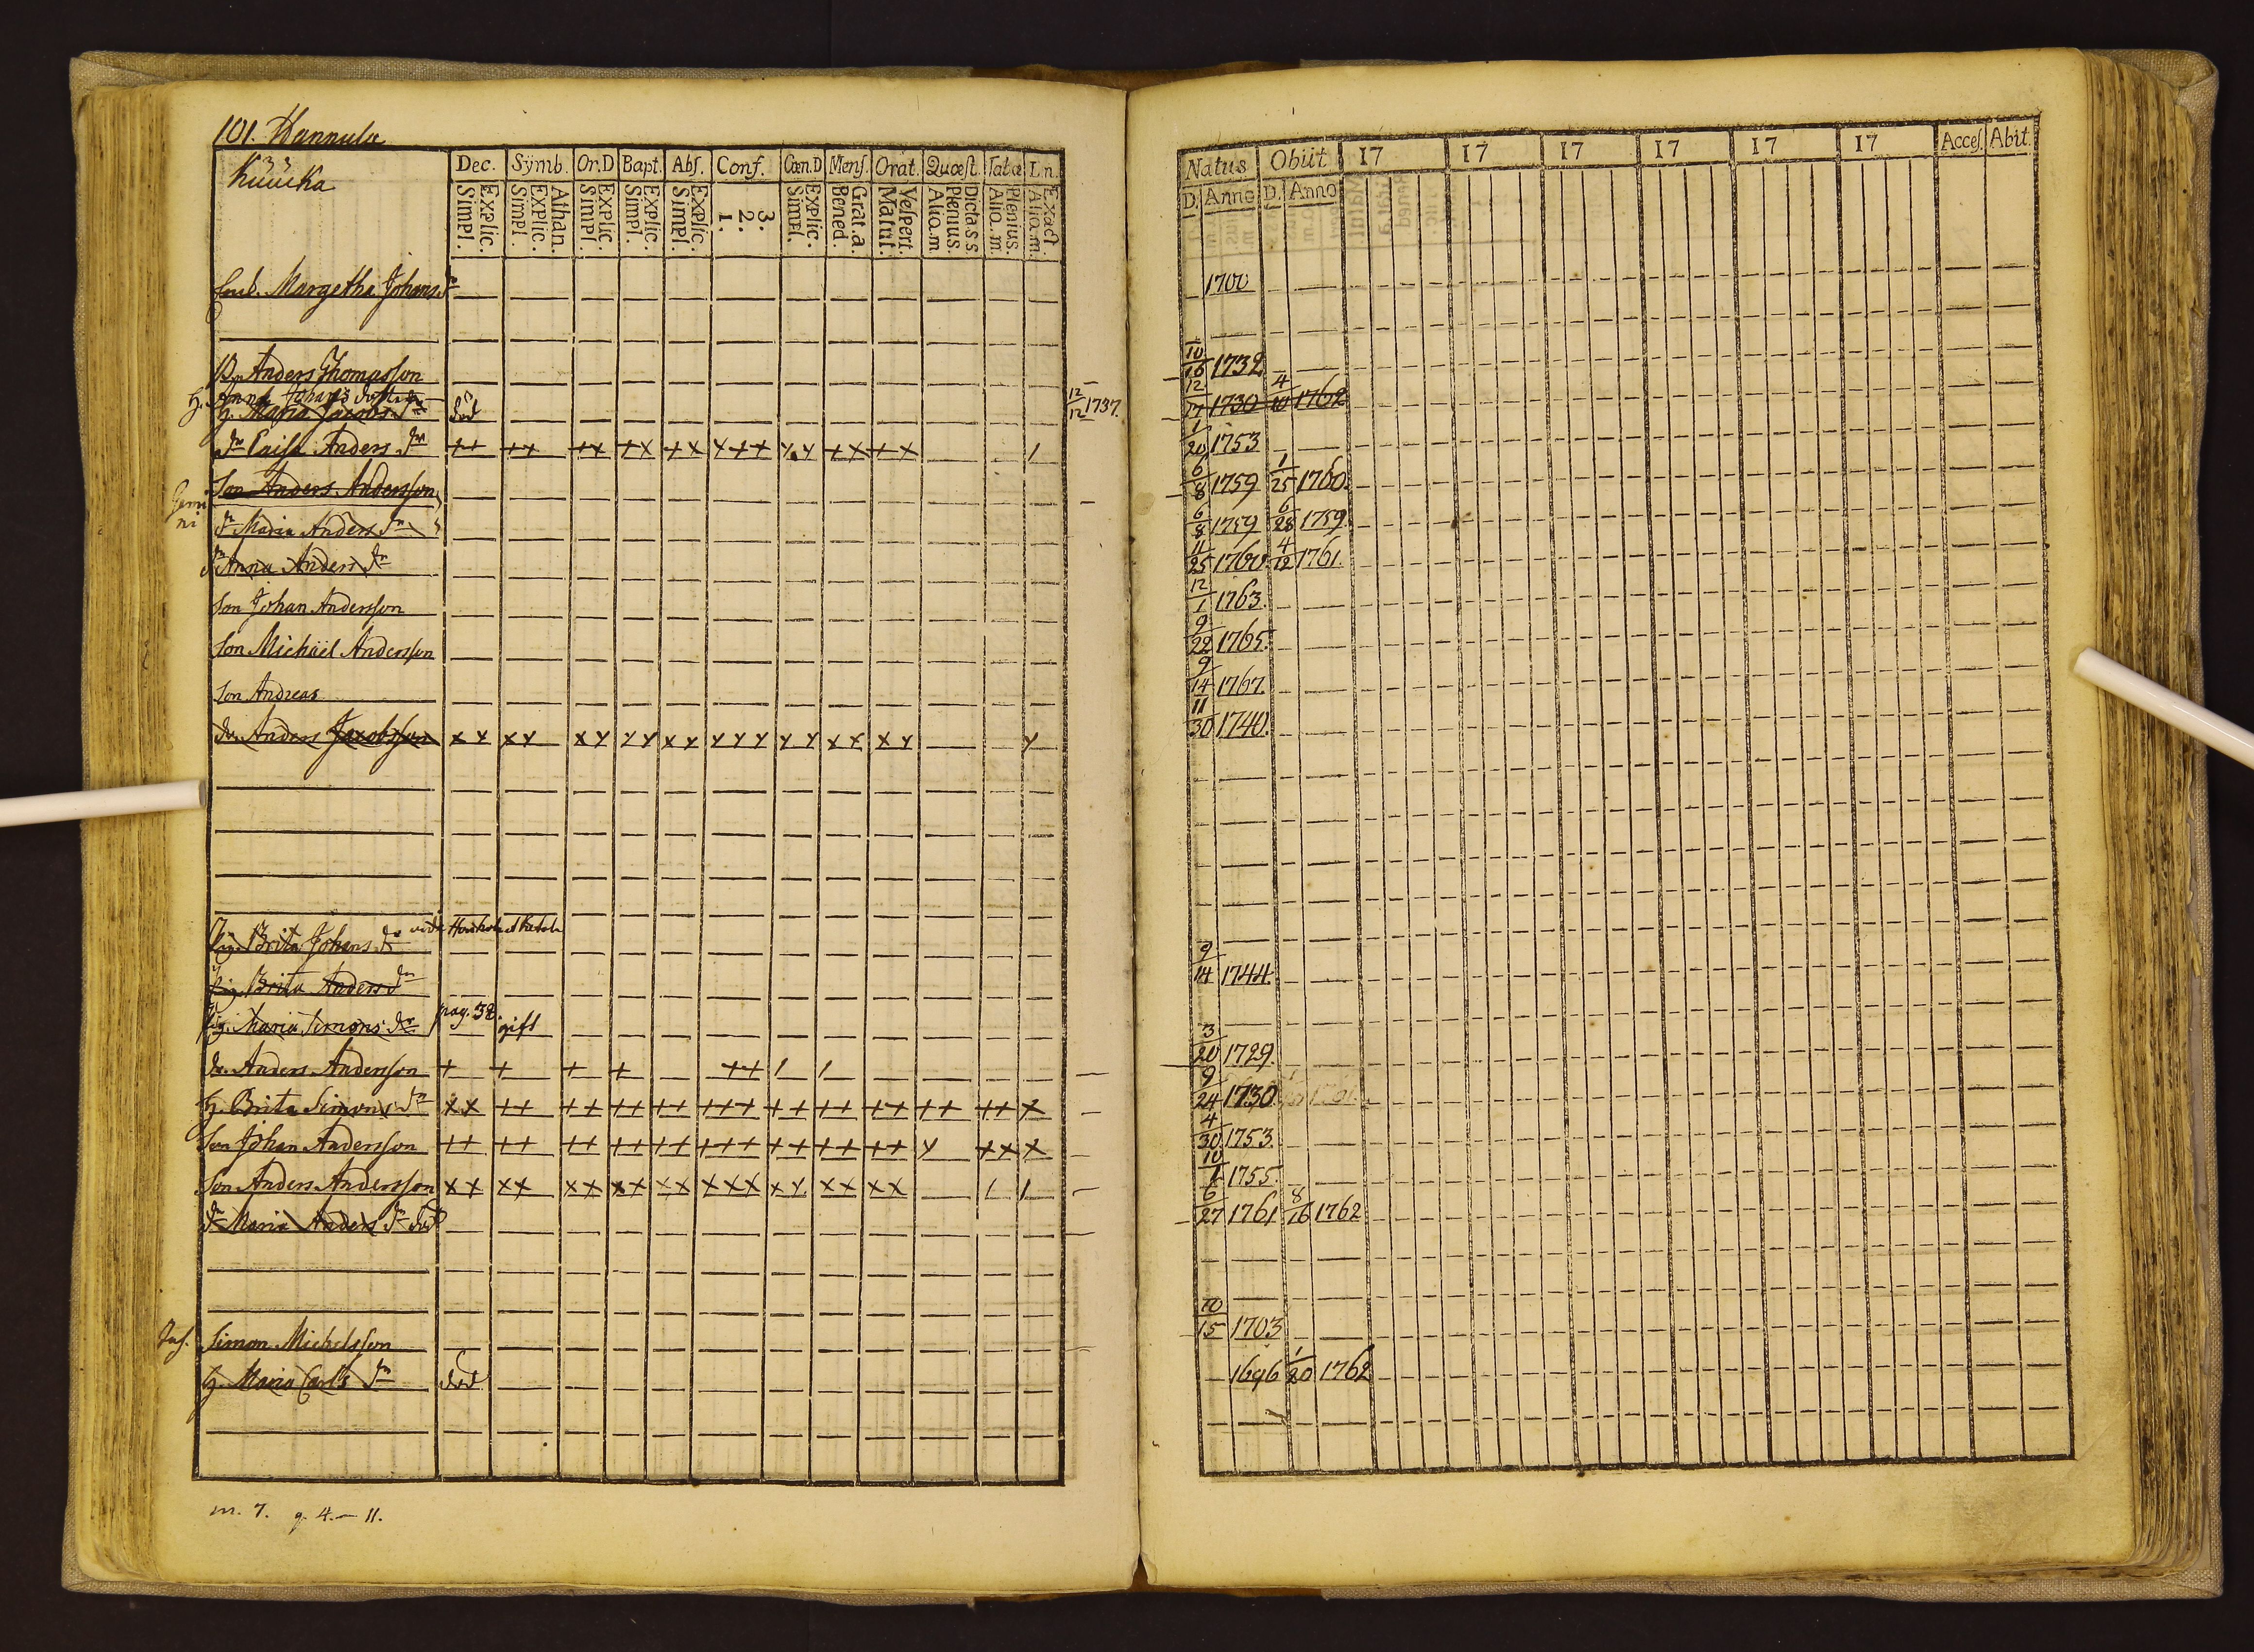 101. Hannula
Kuuka
Dec. Sÿmb. Or.D Bapt. Abs. Conf. Cœn.D Mens. Orat. Quæst. Tatæ Ln.
Explic. Simpl. Athan. Explic. Simpl. Explic. Simpl. Explic. Simpl. Explic. Simpl. 3. 2. 1. Explic. Simpl. Grat.a. Bened. Vespert. Matut. Dicta.s.s. Plenius. Aliq.m Plenius. Aliq.m Exact Aliq.m
Natus Obiit 17 17 17 17 17 17 Acces. Abit.
D. Anno D. Anno
Enk. Margetha Johans dr 1700
B. Anders Thomasson 10/16 1732
H. Anna Johans dotter 12/12 1737.
H. Maria Jacobs dr död 12/17 1730 4/10 1762
dr Caisa Anders dr ++ ++ ++ ++ ++ +++ ++ ++ ++ / 1/20 1753
Gemini
Son Anders Andersson 6/8 1759 1/25 1760.
dr Maria Anders dr 6/8 1759 6/28 1759.
dr Anna Anders dr 11/25 1760. 4/12 1761.
Son Johan Andersson 12/1 1763.
Son Michäel Andersson 9/22 1765.
Son Andreas 9/14 1767.
dr. Anders Jacobsson x x x x x x x x x x x x x x x x x x x x 11/30 1740.
Pig. Brita Johans dr vide
Pig. Brita Anders dr 9/14 1744.
Pig. Maria Simons dr pag. 32. gift
dr. Anders Andersson + + + + ++ / / 3/20 1729.
H. Brita Simons dr xx ++ ++ ++ ++ +++ ++ ++ ++ ++ ++ x 9/24 1730.
Son Johan Andersson ++ ++ ++ ++ ++ +++ ++ ++ ++ x ++ x 4/30 1753.
Son Anders Andersson xx xx xx xx xx xxx xx xx xx / / 10/1 1755.
dr Maria Anders dr död 6/27 1761 8/16 1762
Inh. Simon Michelsson 10/15 1703
H. Maria Carls dr död 1696 1/20 1762
m. 7. q. 4.— 11.